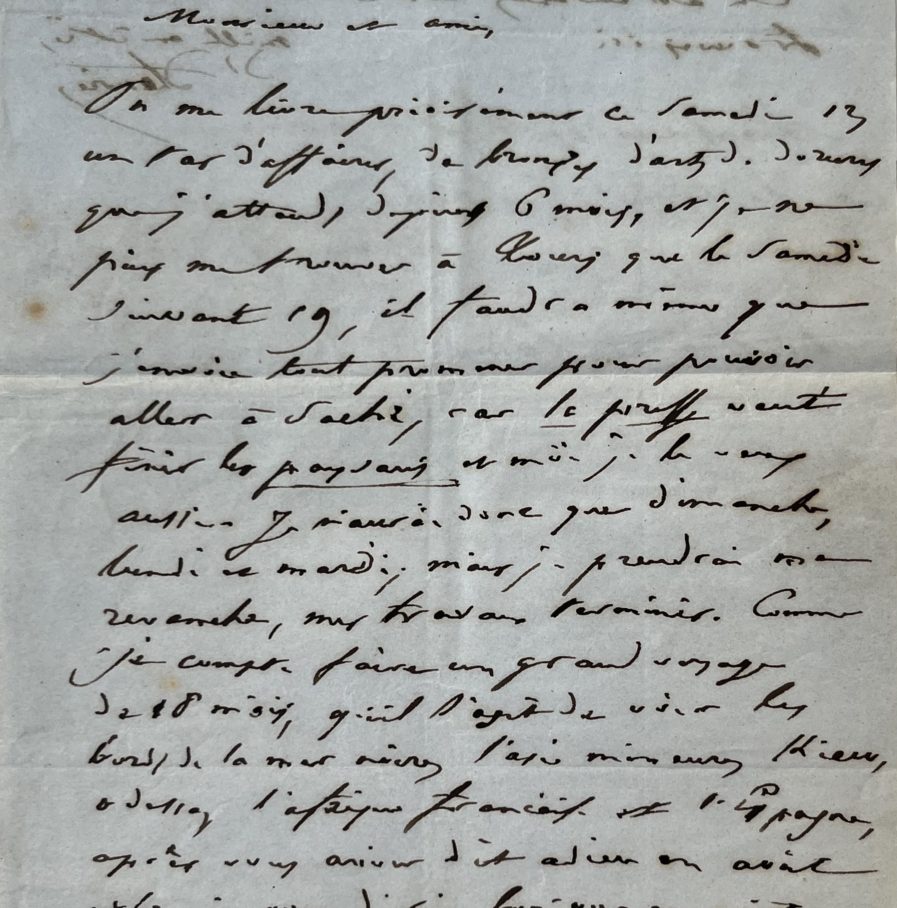 Monsieur et ami,
On me livre précisément ce Samedi 12
un tas d'affaires, de bronzes d'art, de dorures
que j'attends depuis 6 mois, et je ne
puis me trouver à Tours que le Samedi
suivant 19, il faudra même que
j'envoie tout promener pour pouvoir
aller à Saché, car la presse veut
finir les paysans et moi je le veux
aussi. Je n'aurai donc que dimanche,
lundi et mardi; mais je prendrai ma
revanche, mes travaux terminés. Comme
je compte faire un grand voyage
de 18 mois, qu'il s'agit de voir les
bords de la mer noire, l'asie mineure, Kiew,
odessa, l'afrique française et l'Espagne,
après vous avoir dit adieu en avril